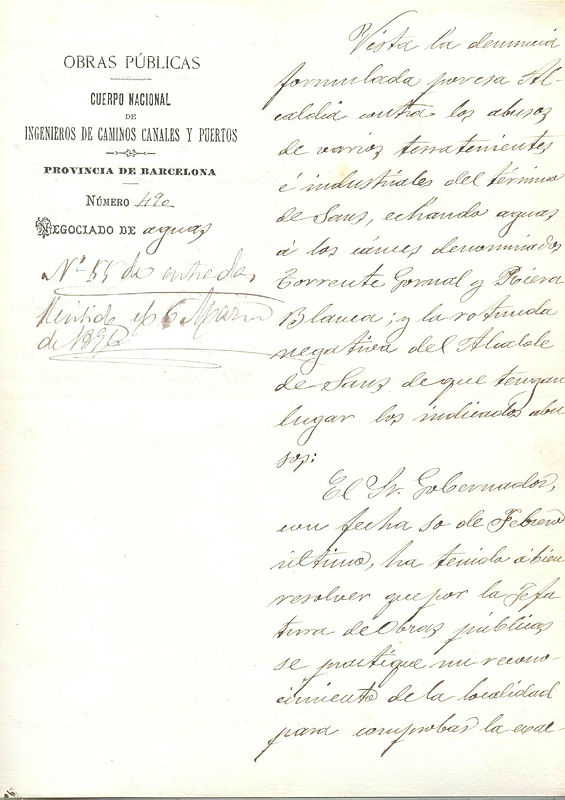 OBRAS PÚBLICAS
CUERPO NACIONAL
DE
INGENIEROS DE CAMINOS CANALES Y PUERTOS
PROVINCIA DE BARCELONA
NÚMERO 490
NEGOCIADO DE aguas
Nº 55 de entrada
6 Marzo
de 1890
Vista la denuncia
formulada por esa Al-
caldia contra los abusos
de varios terratenientes
é industriales del término
de Sans, echando aguas
á los cáuces denominados
Torrente Gornal y Riera
Blanca; y la rotunda
negativa del Alcalde
de Sans de que tengan
lugar los indicados abu
sos:
El Sr. Gobernador,
con fecha de Febrero
último, ha tenido á bien
resolver que por la Jefa
tura de Obras públicas
se practique un recono-
cimiento de la localidad
para comprobar la exac-